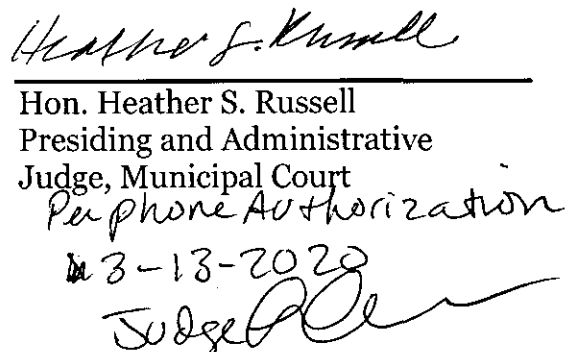 Heather S. Russell
Hon. Heather S. Russell
Presiding and Administrative
Judge, Municipal Court
Per phone Authorization
3-13-2020
Judge